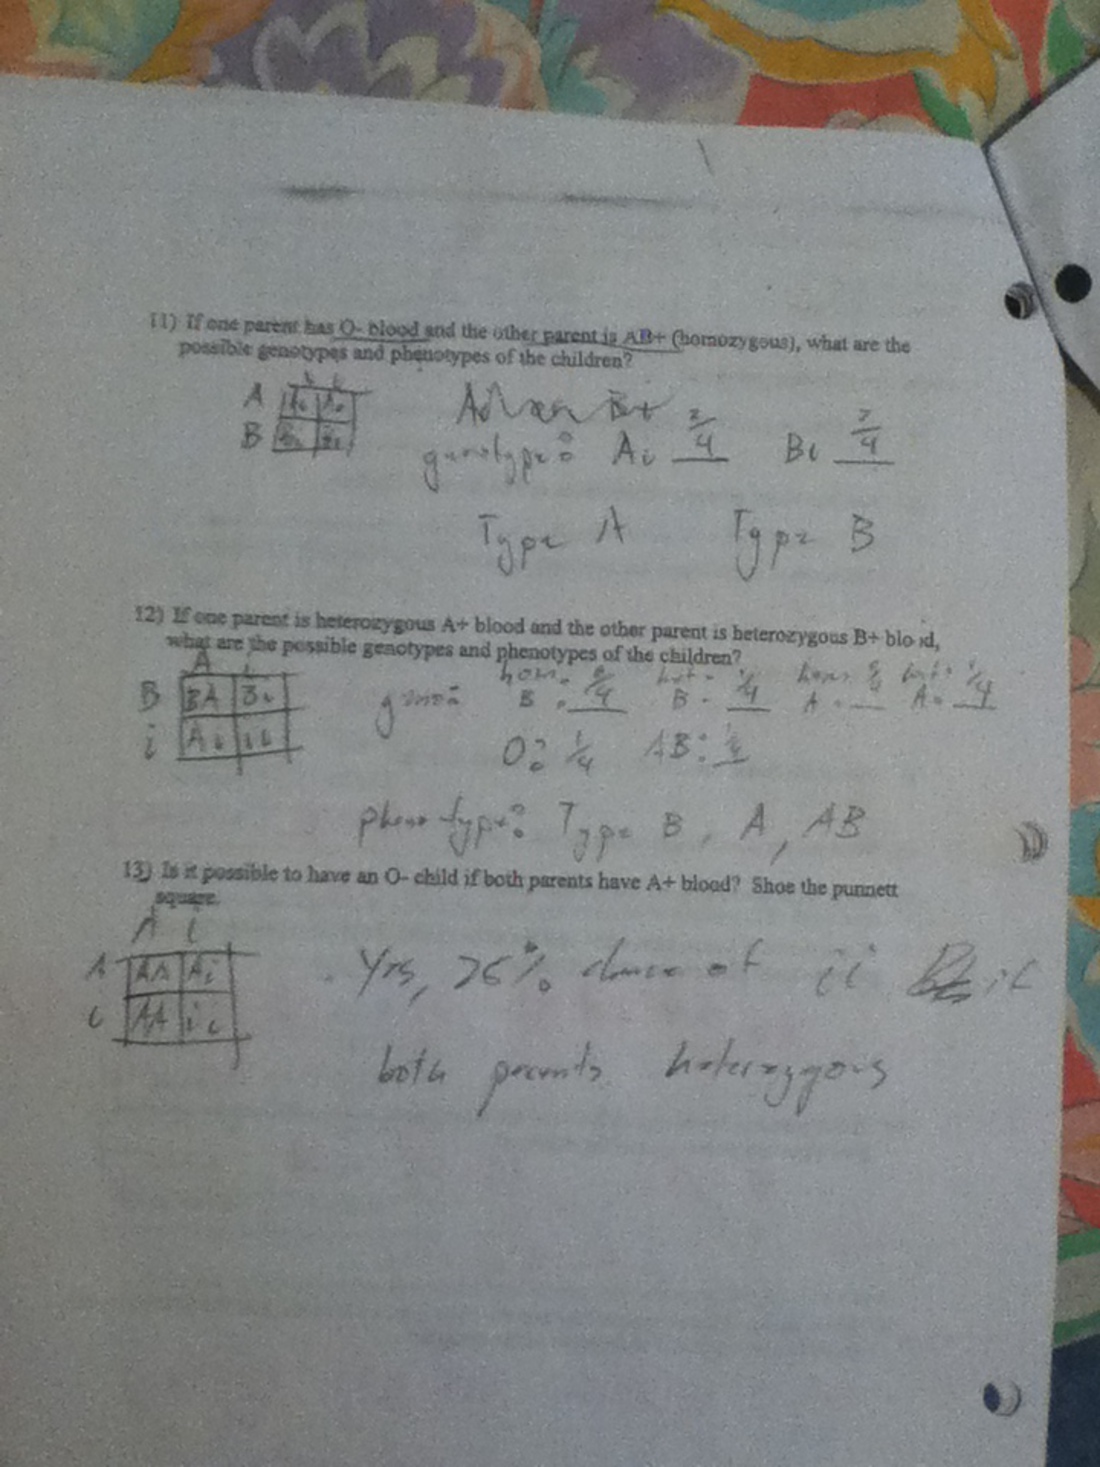 11) If one parent has O- blood and the other parent is AB+ (homozygous), what are the
possible genotypes and phenotypes of the children?
i i
A Ai Ai
B Bi Bi
genotype: Ai 2/4 Bi 2/4
Type A Type B
12) If one parent is heterozygous A+ blood and the other parent is heterozygous B+ blood,
what are the possible genotypes and phenotypes of the children?
A i
B BA Bi
i Ai ii
hom. B. 0/4 het. B - 1/4 hom. A. 0/4 het. A. 1/4
O: 1/4 AB:
phenotype: Type B, A, AB
13) Is it possible to have an O- child if both parents have A+ blood? Shoe the punnett
square.
A i
A AA Ai
i AA ii
Yes, 25% chance of ii if
both parents heterozygous